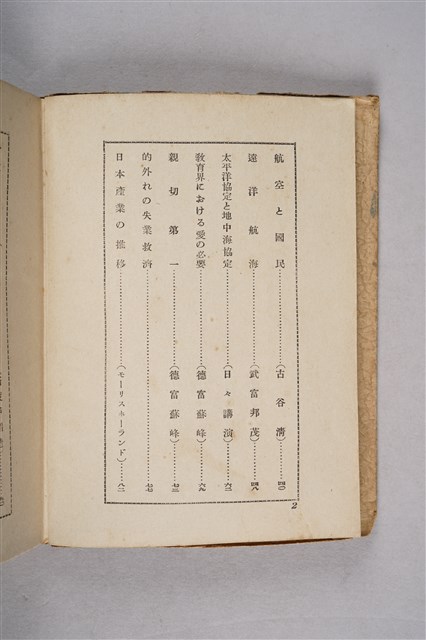 航空と國民……………(古谷淸)……四〇
遠洋航海……………(武富邦茂)……四八
太平洋協定と地中海協定……………(日々講演)……六二
敎育界における愛の必要……………(德富蘇峰)……六九
親切第一……………(德富蘇峰)……七三
的外れの失業救濟……………七七
日本産業の推移……………(モーリスホーランド)……八二
2